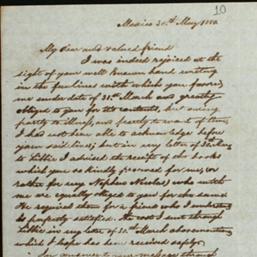 10
Mexico 30th May 1880
My dear and valued friend
I was indeed rejoiced at the
sight of your well known hand writing
in the few lines with which you favored
me under date of 31st March and greatly
obliged to you for its contents, but owing
partly to illness, and partly to want of time,
I has not been able to acknowledge before
your said lines; but in my letter of
to Lillie I advised the receipt of the books
which you so kindly procured for me, or
rather for my Nephew Nicolas, who with
me are equally obliged to you for the same
He required them for a friend who I understand
is perfectly satisfied. The cost I sent through
Lillie in my letter of 30th March abovementioned
which I hope has been received safely.
In answer to your message through